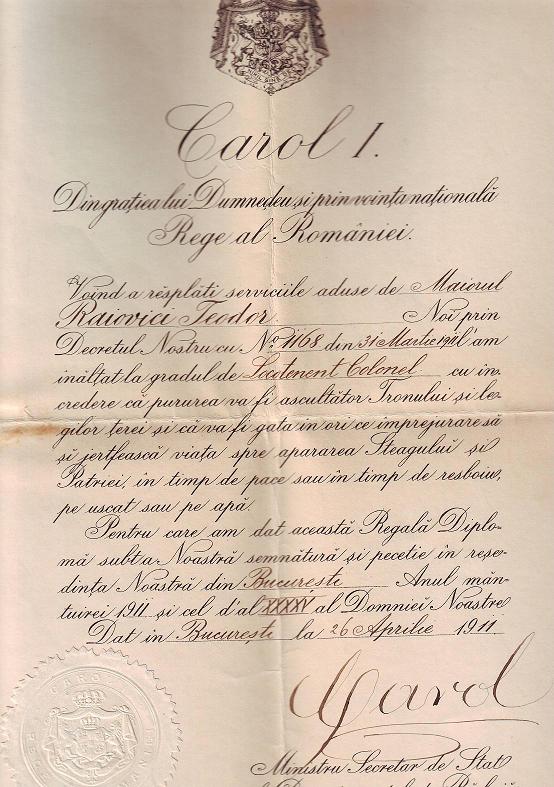 NIHIL SINE DEO
Carol I.
Din grația lui Dumnedeu și prin voința națională
Rege al României.
Voind a rĕsplăti serviciile aduse de Maiorul
Raiovici Teodor. Noi prin
Decretul Nostru cu No. 1168 din 31 Martie 1911 l'am
înălțat la gradul de Locotenent Colonel cu în
credere că pururea va fi ascultător Tronului și le-
gilor țerei și că va fi gata in ori ce împrejurare să
și jertfească viața spre apararea Steagului și
Patriei, în timp de pace sau în timp de resboiu,
pe uscat sau pe apă.
Pentru care am dat această Regală Diplo-
mă subt a Noastră semnătură și pecetie în reșe-
dința Noastră din București Anul mân-
tuirei 1911 și cel d'al XXXXV al Domniei Noastre
Dat in București la 26 Aprilie 1911.
Carol
CAROL I
REGE ROMANIEI
Ministru Secretar de Stat